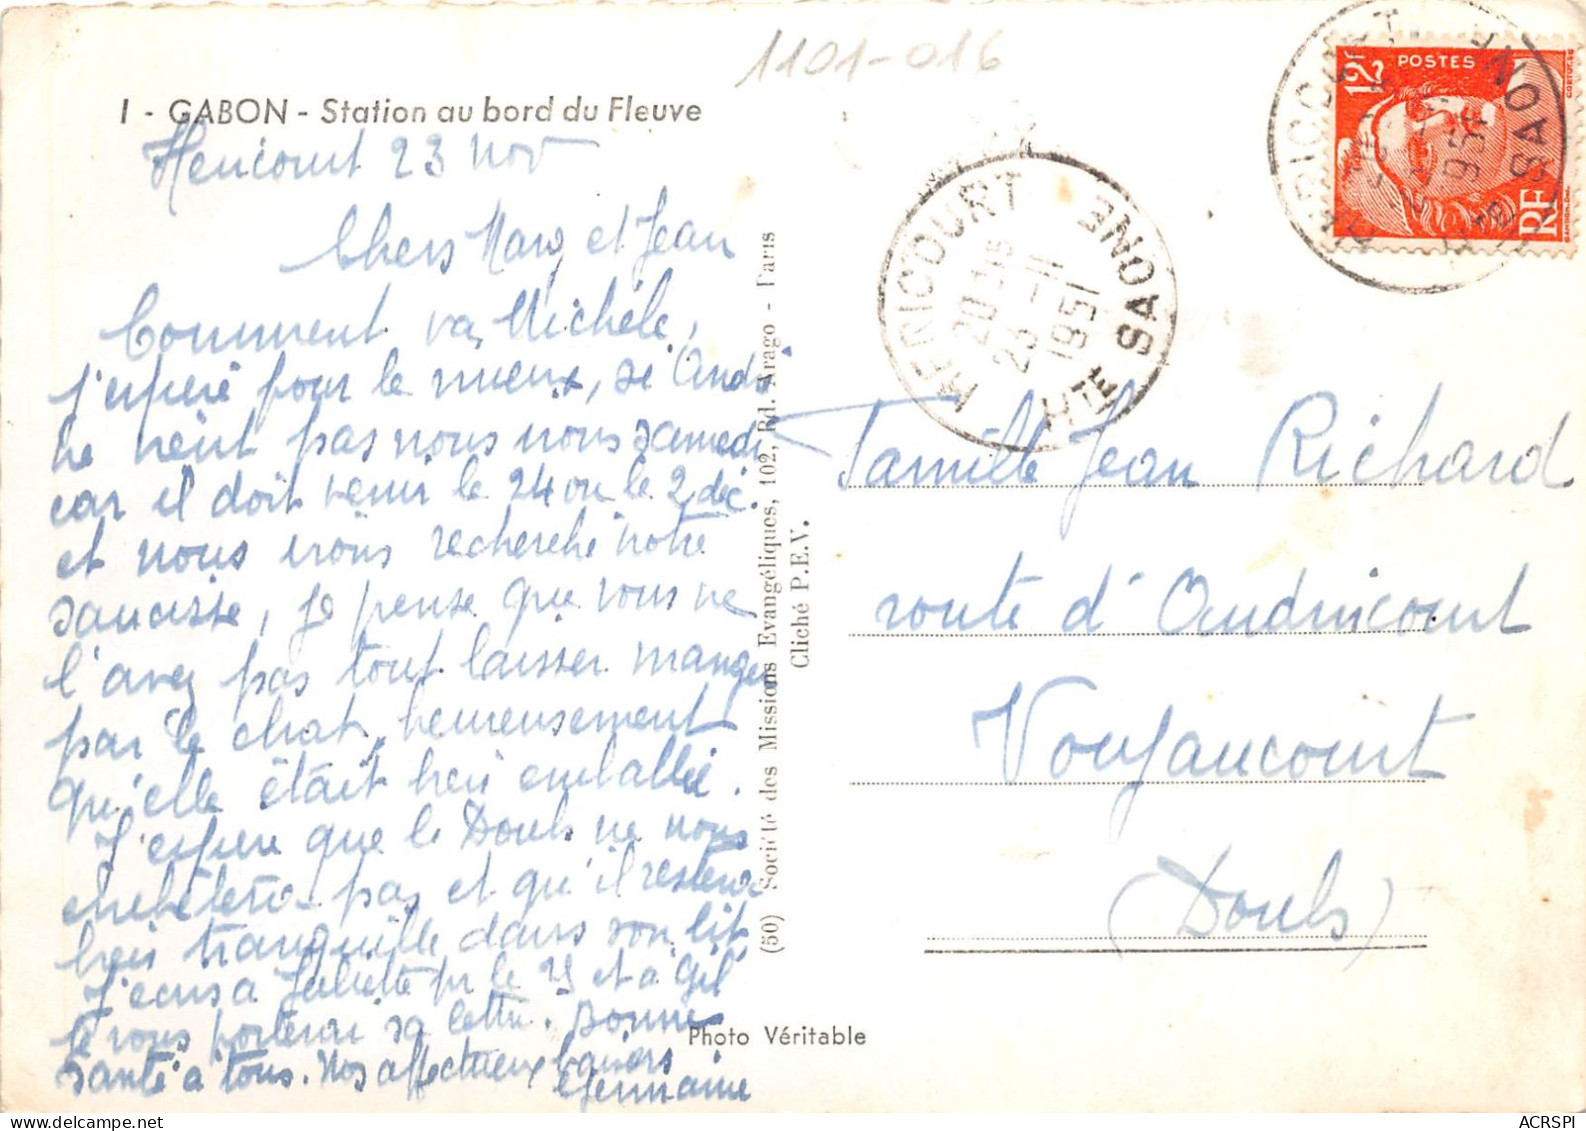 1101-016
1 - GABON - Station au bord du Fleuve
Héricourt 23 nov
Chers Marg et Jean
Comment va Michèle,
j'espère pour le mieux, si André
ne vient pas nous nous samedi
car il doit venir le 24 ou le 2 déc.
et nous irons recherche notre
sauciste, je pense que vous ne
l'avez pas tout laisser manger
par le chat, heureusement
qu'elle était bien emballée.
J'espère que le Doubs ne nous
embêtera pas et qu'il restera
bien tranquille dans son lit
J'écris a Juliette pr le 25 et a Gil
te vous porterai sa lettre. Bonne
santé a tous. Nos affectueux baisers
Germaine
(50) Société des Missions Evangéliques, 102, Bd. Arago - Paris
Cliché P.E.V.
Photo Véritable
HERICOURT
HTE SAONE
20 H
23 -11
1951
POSTES
12F
RF
HERICOURT
HTE SAONE
Famille Jean Richard
route d'Audincourt
Voujaucourt
(Doubs)
ACRSPI